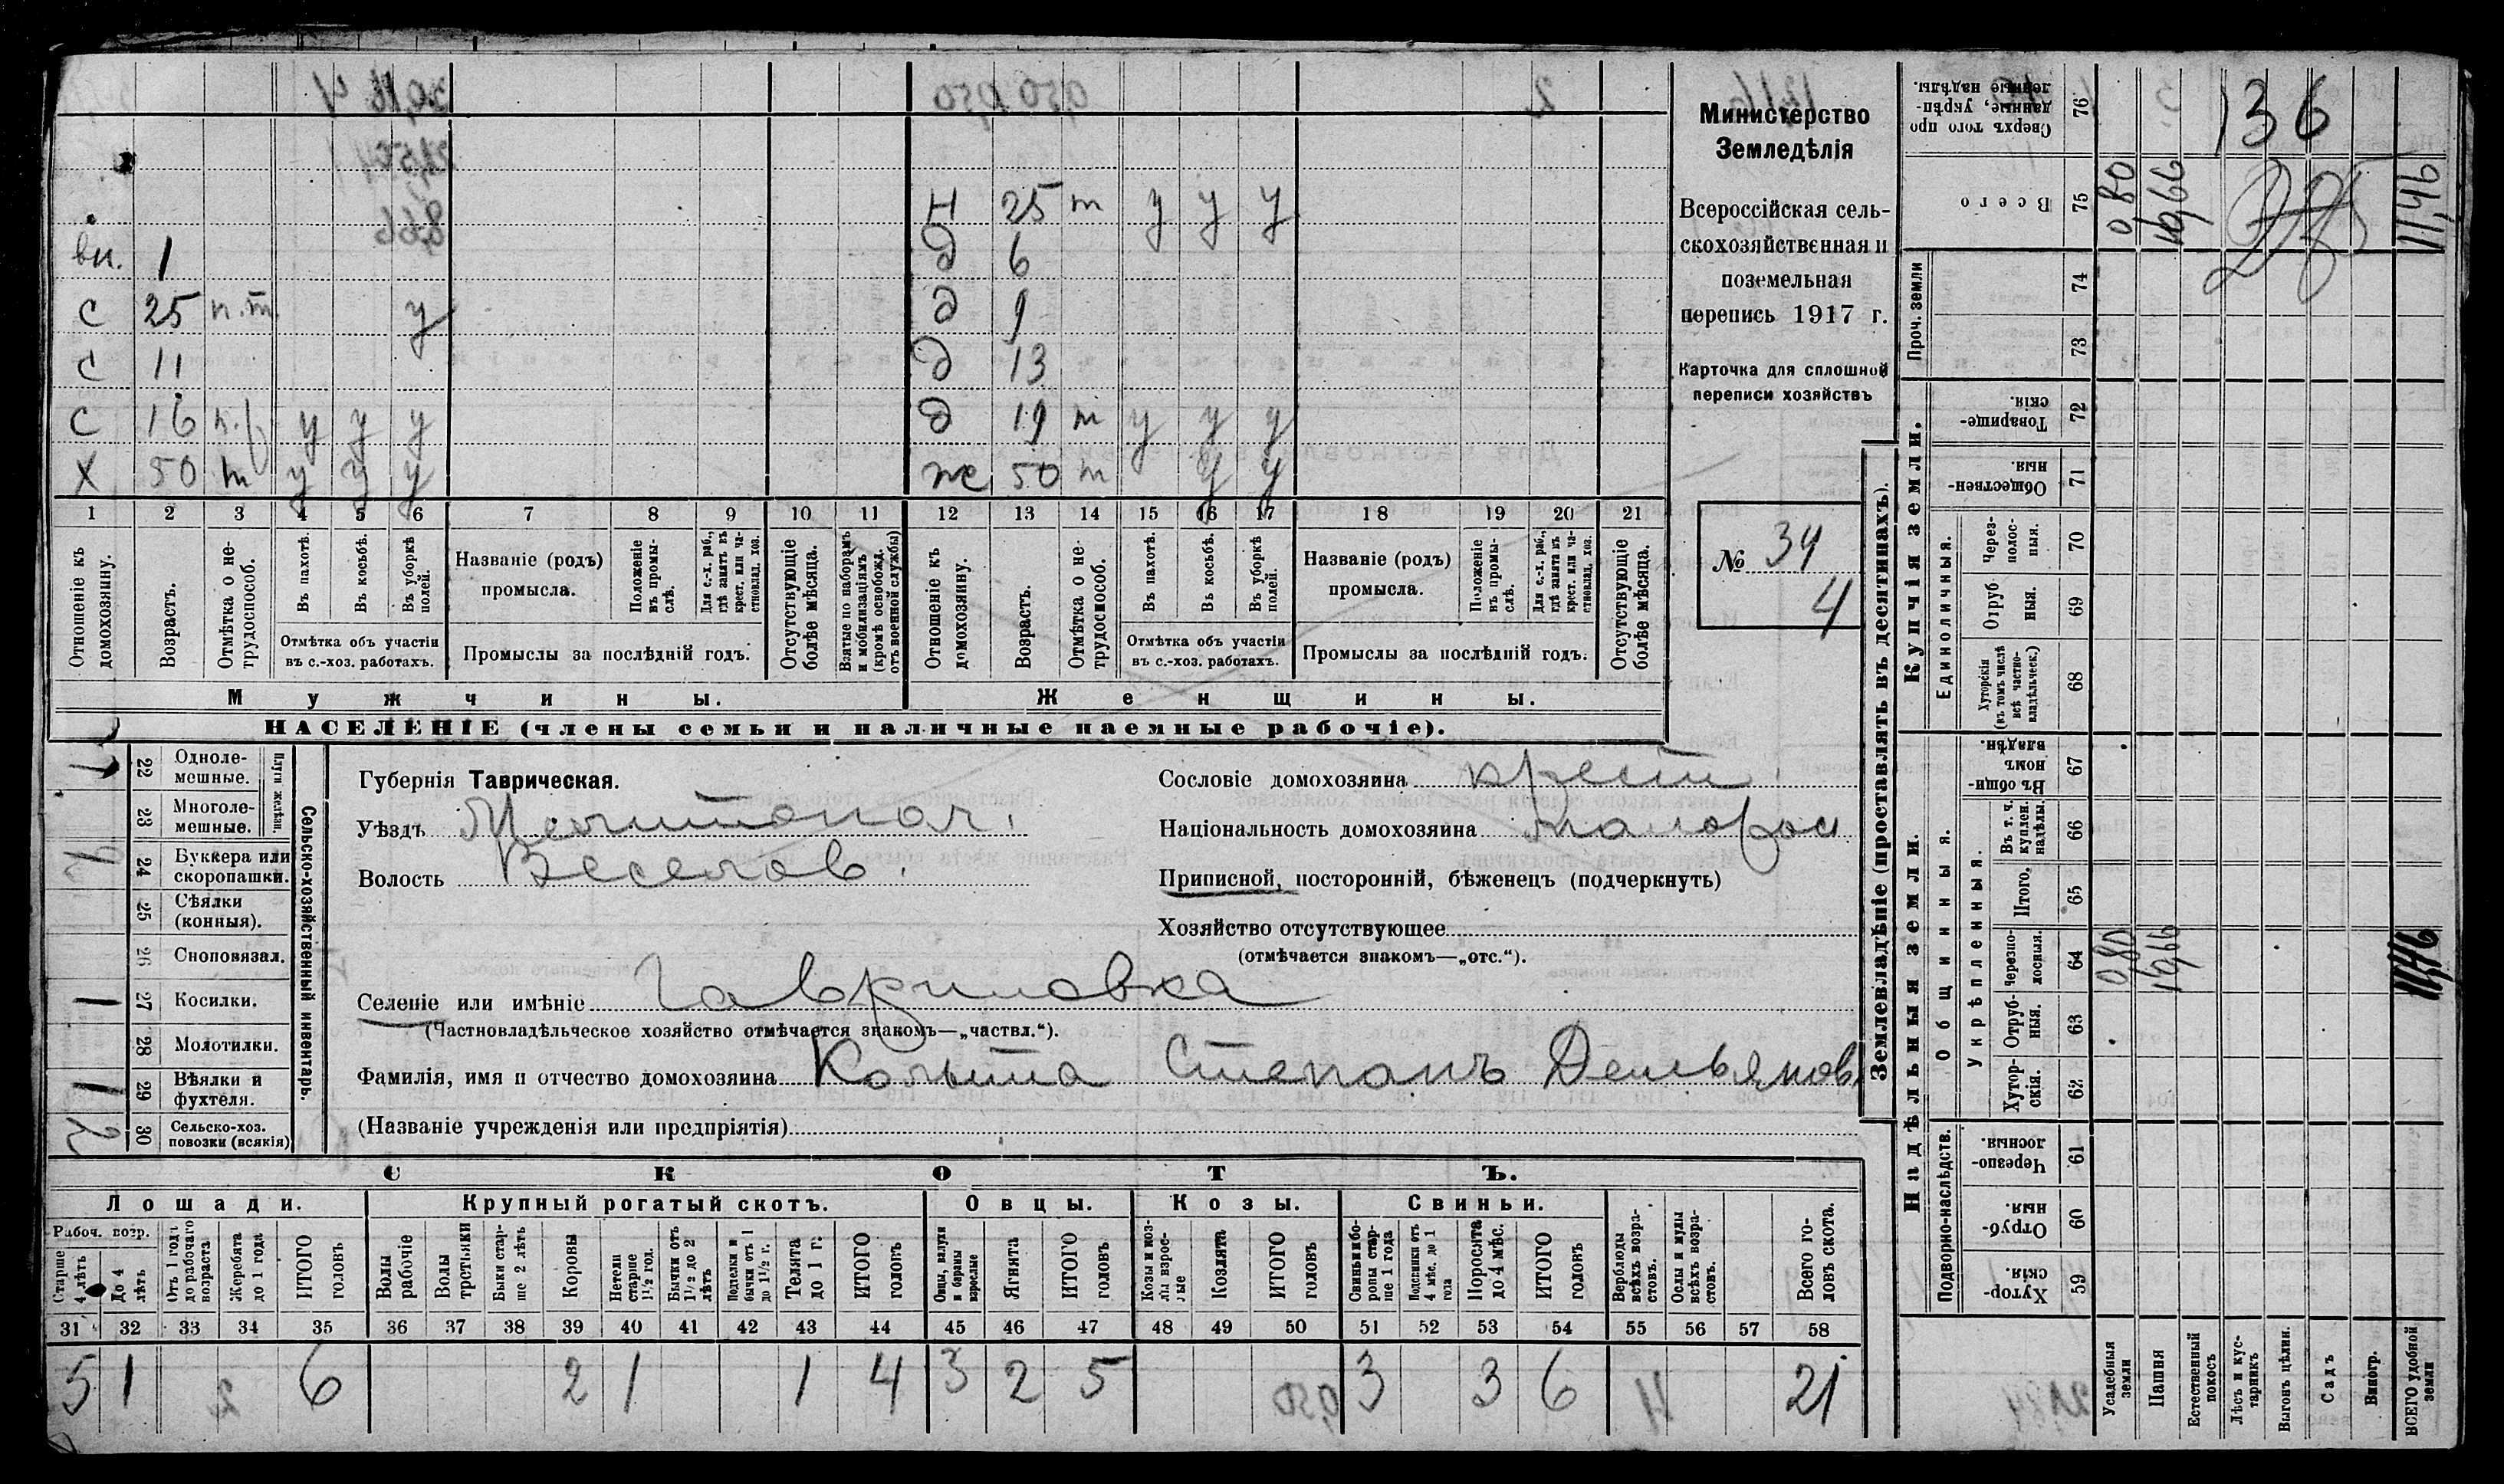 Министерство
Земледѣлія
Всероссійская сель-
скохозяйственная и
поземельная
перепись 1917 г.
Карточка для сплошной
переписи хозяйствъ
№ 34
4
Н 25 т у у у
вн. 1 д 6
С 25 п.т. у д 9
С 11 д 13
С 16 п.р у у у д 19 т у у у
Х 50 т у у у же 50 т у у
1 2 3 4 5 6 7 8 9 10 11 12 13 14 15 16 17 18 19 20 21
Отношеніе къ домохозяину.
Возрастъ.
Отмѣтка о не-трудоспособ.
Въ пахотѣ.
Въ косьбѣ.
Въ уборкѣ полей.
Отмѣтка объ участіи
въ с.-хоз. работахъ.
Названіе (родъ)
промысла.
Положеніе въ промы-слѣ.
Для с.-х. раб., гдѣ занятъ въ крест. или ча-стновлад. хоз.
Промыслы за послѣдній годъ.
Отсутствующіе болѣе мѣсяца.
Взятые по наборамъ и мобилизаціямъ (кромѣ освобожд. отъ военной службы)
Отношеніе къ домохозяину.
Возрастъ.
Отмѣтка о не-трудоспособ.
Въ пахотѣ.
Въ косьбѣ.
Въ уборкѣ полей.
Отмѣтка объ участіи
въ с.-хоз. работахъ.
Названіе (родъ)
промысла.
Положеніе въ промы-слѣ.
Для с.-х. раб., гдѣ занята въ крест. или ча-стновлад. хоз.
Промыслы за послѣдній годъ.
Отсутствующіе болѣе мѣсяца.
Мужчины. Женщины.
НАСЕЛЕНІЕ (члены семьи и наличные наемные рабочіе).
Сельско-хозяйственный инвентарь.
Плуги желѣзн.
1 22 Одноле-мешные.
23 Многоле-мешные.
1 24 Буккера или скоропашки.
25 Сѣялки (конныя).
26 Сноповязал.
1 27 Косилки.
28 Молотилки.
1 29 Вѣялки и фухтеля.
2 30 Сельско-хоз. повозки (всякія)
Губернія Таврическая.
Уѣздъ Мелитопол.
Волость Веселов.
Сословіе домохозяина крест.
Національность домохозяина малорос
Приписной, посторонній, бѣженецъ (подчеркнуть)
Хозяйство отсутствующее
(отмѣчается знакомъ—„отс.“).
Селеніе или имѣніе Гавриловка
(Частновладѣльческое хозяйство отмѣчается знакомъ—„частвл.“).
Фамилія, имя и отчество домохозяина Колыта Степанъ Демьянов
(Названіе учрежденія или предпріятія)
СКОТЪ.
Лошади. Крупный рогатый скотъ. Овцы. Козы. Свиньи.
Рабоч. возр.
Старше 4 лѣтъ
До 4 лѣтъ
Отъ 1 года до рабочаго возраста
Жеребята до 1 года
ИТОГО головъ
Волы рабочіе
Волы третьяки
Быки стар-ше 2 лѣтъ
Коровы
Нетели старше 1½ год.
Бычки отъ 1½ до 2 лѣтъ
Подтелки и бычки отъ 1 до 1½ г.
Телята до 1 г.
ИТОГО головъ
Овцы, валухи и бараны взрослые
Ягнята
ИТОГО головъ
Козы и коз-лы взрос-лые
Козлята
ИТОГО головъ
Свиньи и бо-ровы стар-ше 1 года
Подсвинки отъ 4 мѣс. до 1 года
Поросята до 4 мѣс.
ИТОГО головъ
Верблюды всѣхъ возра-стовъ.
Ослы и мулы всѣхъ возра-стовъ.
Всего го-ловъ скота.
31 32 33 34 35 36 37 38 39 40 41 42 43 44 45 46 47 48 49 50 51 52 53 54 55 56 57 58
5 1 6 2 1 1 4 3 2 5 3 3 6 21
Землевладѣніе (проставлять въ десятинахъ).
Купчія земли.
Надѣльныя земли.
Сверхъ того про данные, укрѣп-ленные надѣлы. 76 136
Всего 75 0 80 10,66 11,46
Проч. земли 74
73
Товарище-скія. 72
Обществен-ныя. 71
Единоличныя.
Через-полос-ныя. 70
Отруб-ныя. 69
Хуторскія (въ томъ числѣ всѣ частно-владѣльческ.) 68
Общинныя.
Въ общи-номъ владѣн. 67
Укрѣпленныя.
Въ т. ч. куплен. надѣлы. 66
Итого. 65
Черезпо-лосныя. 64 0 80 10,66 11,46
Отруб-ныя. 63
Хутор-скія. 62
Подворно-наслѣдств.
Черезпо-лосныя. 61
Отруб-ныя. 60
Хутор-скія. 59
Усадебныя земли
Пашня
Естественный покосъ
Лѣсъ и кус-тарникъ
Выгонъ цѣлин.
Садъ
Виногр.
ВСЕГО удобной земли